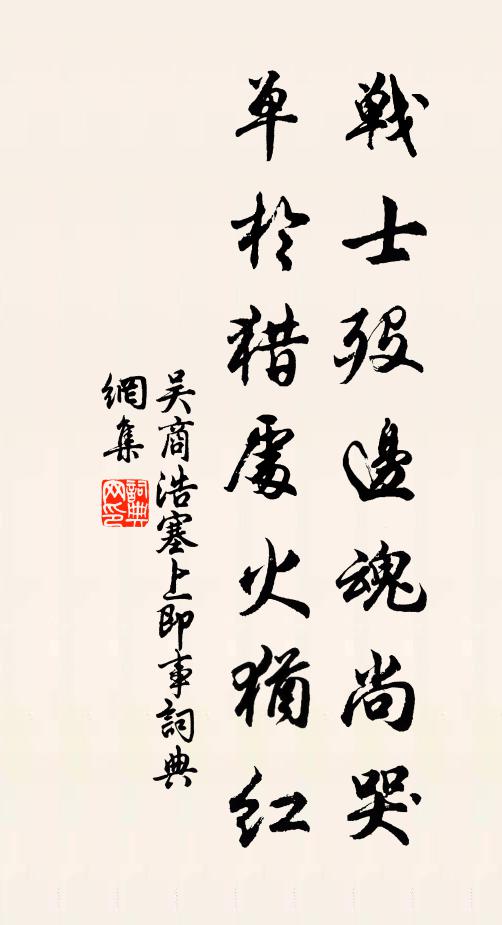 戰士歿邊魂尚哭
单於猎處火猶红
吴商浩塞上即事詞典
網集
詞典网印